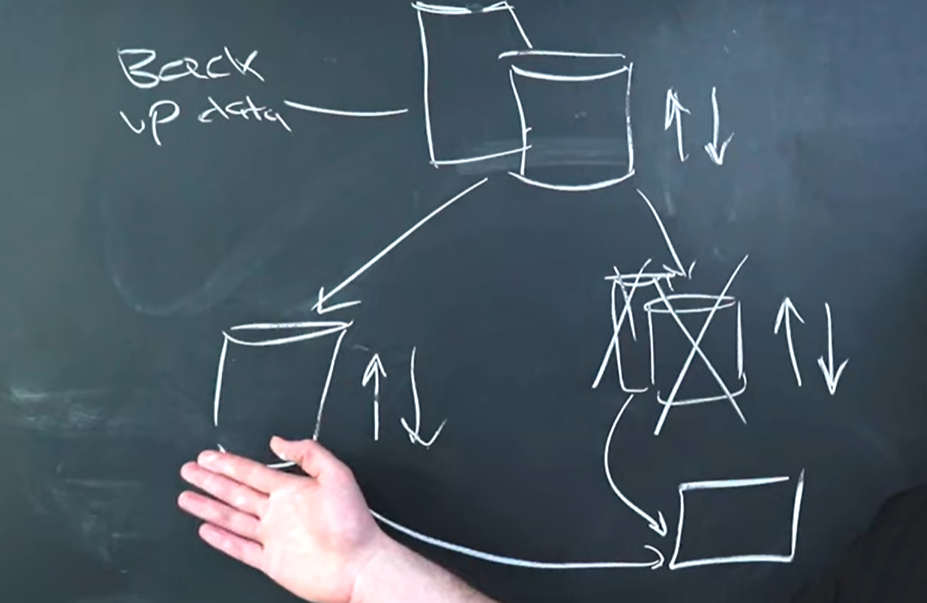 Back
up data